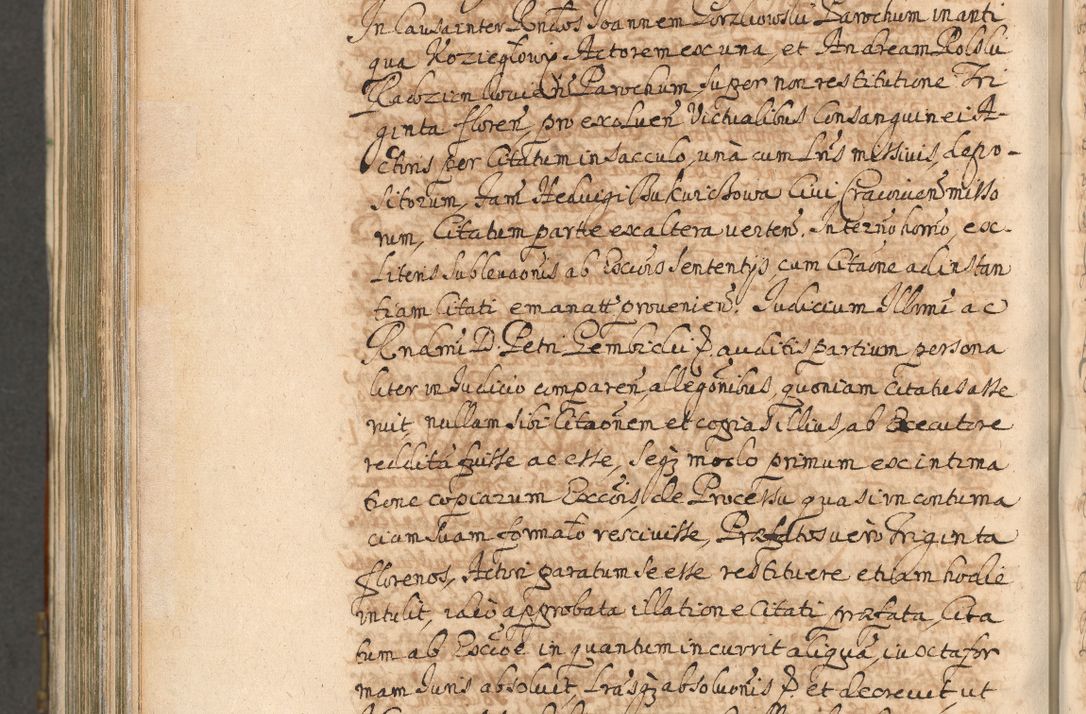 In Causa inter Rndos Joannem Porzkowski Parochum in anti
qua Kozieglowy Actorem ex una, et Andream Rolski
Radozimkowien Parochum, super non restitutione Tri
ginta floren, pro exoluen Victualibus Consanguinei A-
ctoris per Citatum in sacculo, unà cum Lris missivis, depo-
sitorum, Jam Hedvigi civi Cracovien misso
rum, Citatum partie ex altera verten. In termo horno, ex
literis sublevaonis ab Excois sententijs cum Citaone ad instan
tiam Citati emanatt provenien. Judicium Illrmi ac
Rndmi D. Petri Gembicki P auditis partium persona
liter in Judicio comparen, allegonibus, quoniam citatus asse
ruit, nullam sibi Citaonem et copias illius, ab Executore
reddità fuisse ac esse, seqz modo primum ex intima
tione copiarum Exccois, de Processu quasi in contuma
ciam suam formato rescivisse, Præfatos verò Triginta
florenos, Actori paratum se esse restituere etiam hodie
intulit, ideò approbata illatione Citati præfata, Cita
tum ab Excoe in quantum incurrit aliqua, iuxta for
mam Iuris absoluit, Lrasqz absoluonis P et decrevit ut